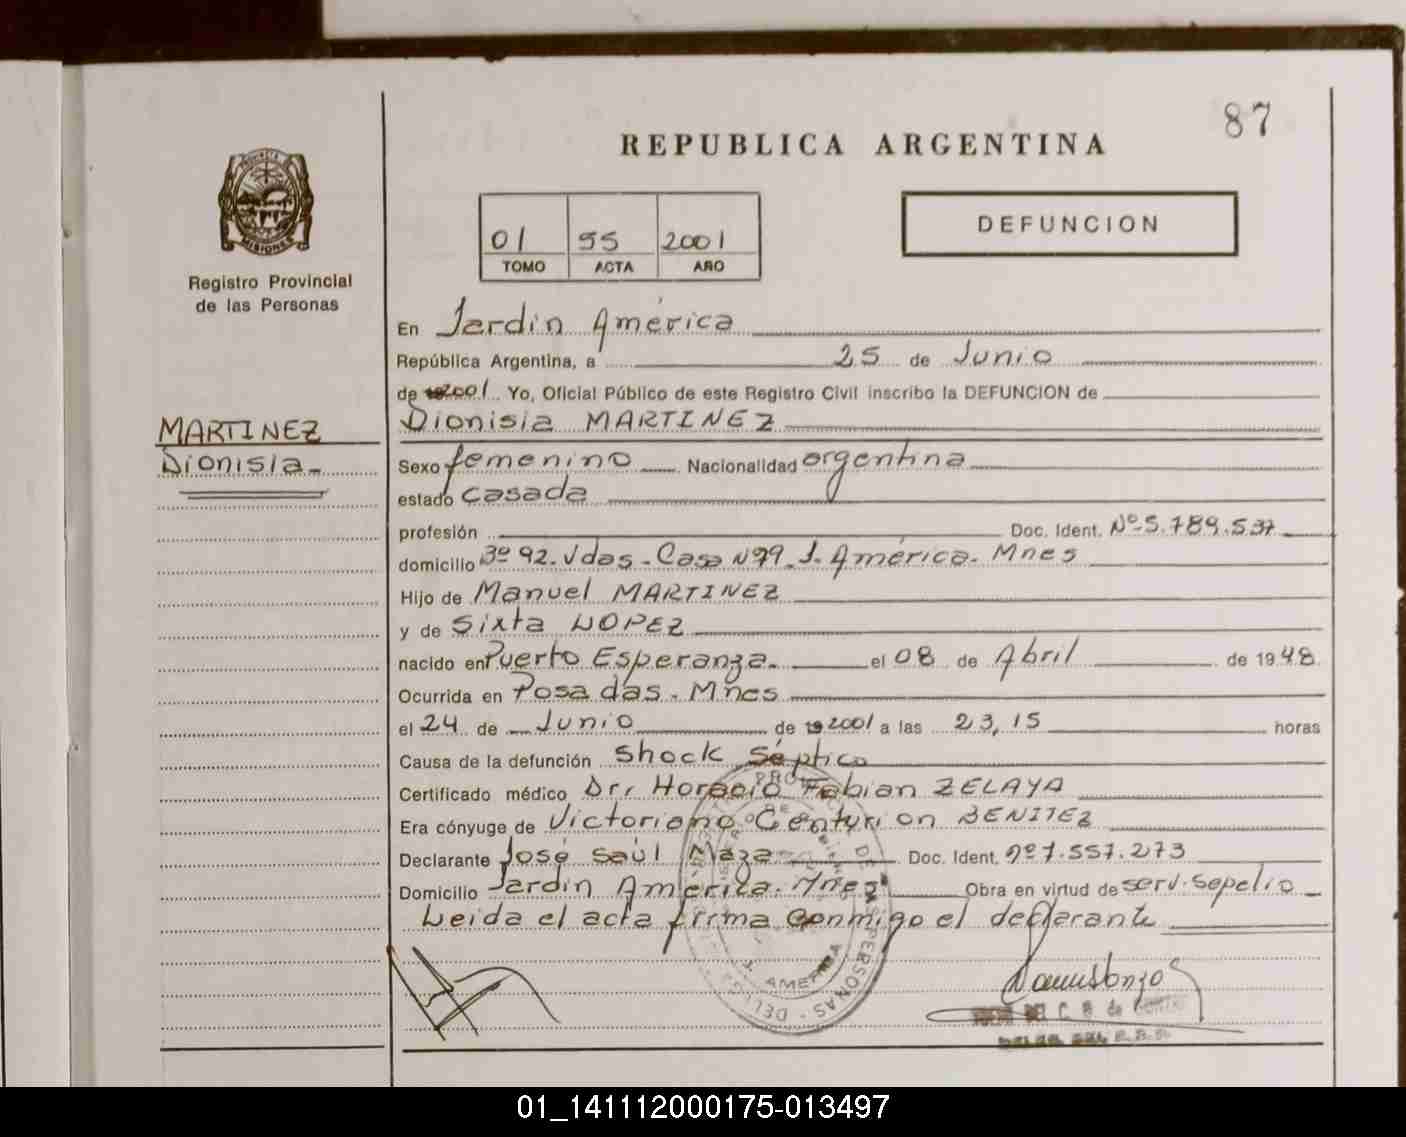 87
REPUBLICA ARGENTINA
PROVINCIA DE MISIONES
Registro Provincial
de las Personas
01 55 2001
TOMO ACTA AÑO
DEFUNCION
MARTINEZ
Dionisia
En Jardín América
República Argentina, a 25 de Junio
de 2001 Yo, Oficial Público de este Registro Civil inscribo la DEFUNCION de
Dionisia MARTINEZ
Sexo femenino Nacionalidad argentina
estado casada
profesión Doc. Ident. Nº 5.789.537
domicilio 3º 92 Vdas - Casa Nº79 - J. América - Mnes
Hijo de Manuel MARTINEZ
y de Sixta LOPEZ
nacido en Puerto Esperanza el 08 de Abril de 1948
Ocurrida en Posadas - Mnes
el 24 de Junio de 2001 a las 23,15 horas
Causa de la defunción Shock Séptico
Certificado médico Dr. Horacio Fabian ZELAYA
Era cónyuge de Victoriano Centurion BENITEZ
Declarante José Saúl Maza Doc. Ident. Nº 7.557.273
Domicilio Jardín América. Mnes Obra en virtud de serv. sepelio
Leida el acta firma conmigo el declarante
J. AMERICA
DE LAS PERSONAS
01_141112000175-013497